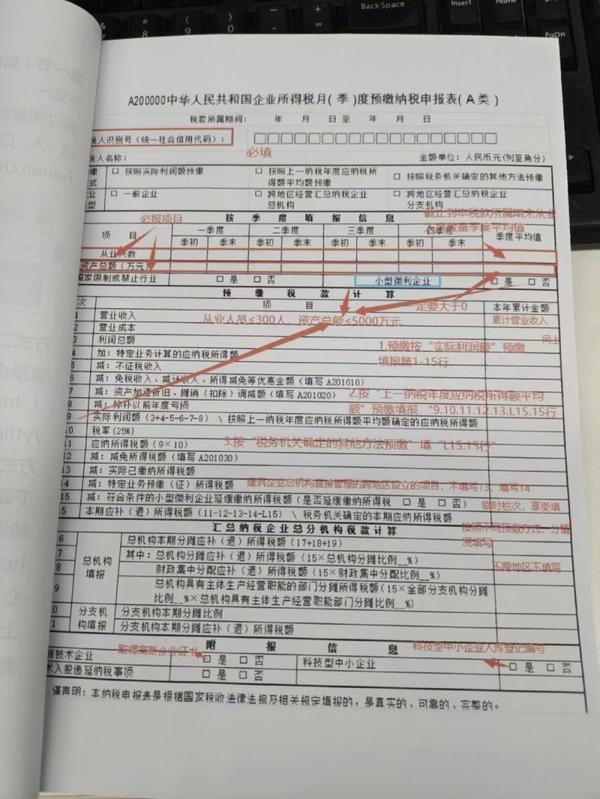 BackSpace
A200000中华人民共和国企业所得税月(季)度预缴纳税申报表(A类)
税款所属期间: 年 月 日至 年 月 日
税人识别号(统一社会信用代码): □□□□□□□□□□□□□□□□□□
必填
税人名称: 金额单位:人民币元(列至角分)
□ 按照实际利润额预缴 □ 按照上一纳税年度应纳税所得额平均额预缴 □ 按照税务机关确定的其他方法预缴
□ 一般企业 □ 跨地区经营汇总纳税企业总机构 □ 跨地区经营汇总纳税企业分支机构
必报项目 按季度填报信息
项 目 一季度 二季度 三季度 四季度 季度平均值
季初 季末 季初 季末 季初 季末 季初 季末
从业人数
资产总额(万元)
国家限制或禁止行业 □ 是 □ 否 小型微利企业 □ 是 □ 否
预缴税款计算
次 项 目 本年累计金额
1 营业收入 一定要大于0 累计营业收入
2 营业成本 从业人员≤300人、资产总额≤5000万元
3 利润总额
1.预缴按“实际利润额”预缴
填报第1-15行
4 加:特定业务计算的应纳税所得额
5 减:不征税收入
6 减:免税收入、减计收入、所得减免等优惠金额(填写A201010)
7 减:资产加速折旧、摊销(扣除)调减额(填写A201020)
2.按“上一纳税年度应纳税所得额平均
额”预缴填报“9.10.11.12.13.L15.15行
8 减:弥补以前年度亏损
9 实际利润额(3+4-5-6-7-8) \ 按照上一纳税年度应纳税所得额平均额确定的应纳税所得额
10 税率(25%)
11 应纳所得税额(9×10) 3.按“税务机关确定的其他方法预缴”填“L15.15行”
12 减:减免所得税额(填写A201030)
13 减:实际已缴纳所得税额
14 减:特定业务预缴(征)所得税额 建筑企业总机构直接管理的跨地区设立的项目,不填写13,填写14
15 减:符合条件的小型微利企业延缓缴纳所得税额(是否延缓缴纳所得税 □ 是 □ 否) 临时栏次,享受填
15 本期应补(退)所得税额(11-12-13-14-L15) \ 税务机关确定的本期应纳所得税额
汇总纳税企业总分机构税款计算
总机构填报
总机构本期分摊应补(退)所得税额(17+18+19)
7 其中:总机构分摊应补(退)所得税额(15×总机构分摊比例__%)
8 财政集中分配应补(退)所得税额(15×财政集中分配比例__%) 不跨地区不填写
9 总机构具有主体生产经营职能的部门分摊所得税额(15×全部分支机构分摊比例__%×总机构具有主体生产经营职能部门分摊比例__%)
分支机构填报
分支机构本期分摊比例
分支机构本期分摊应补(退)所得税额
附报信息
新技术企业 取得高新企业证书 □ 是 □ 否 科技型中小企业 科技型中小企业入库登记编号 □ 是 □ 否
术入股递延纳税事项 □ 是 □ 否
谨声明:本纳税申报表是根据国家税收法律法规及相关规定填报的,是真实的、可靠的、完整的。